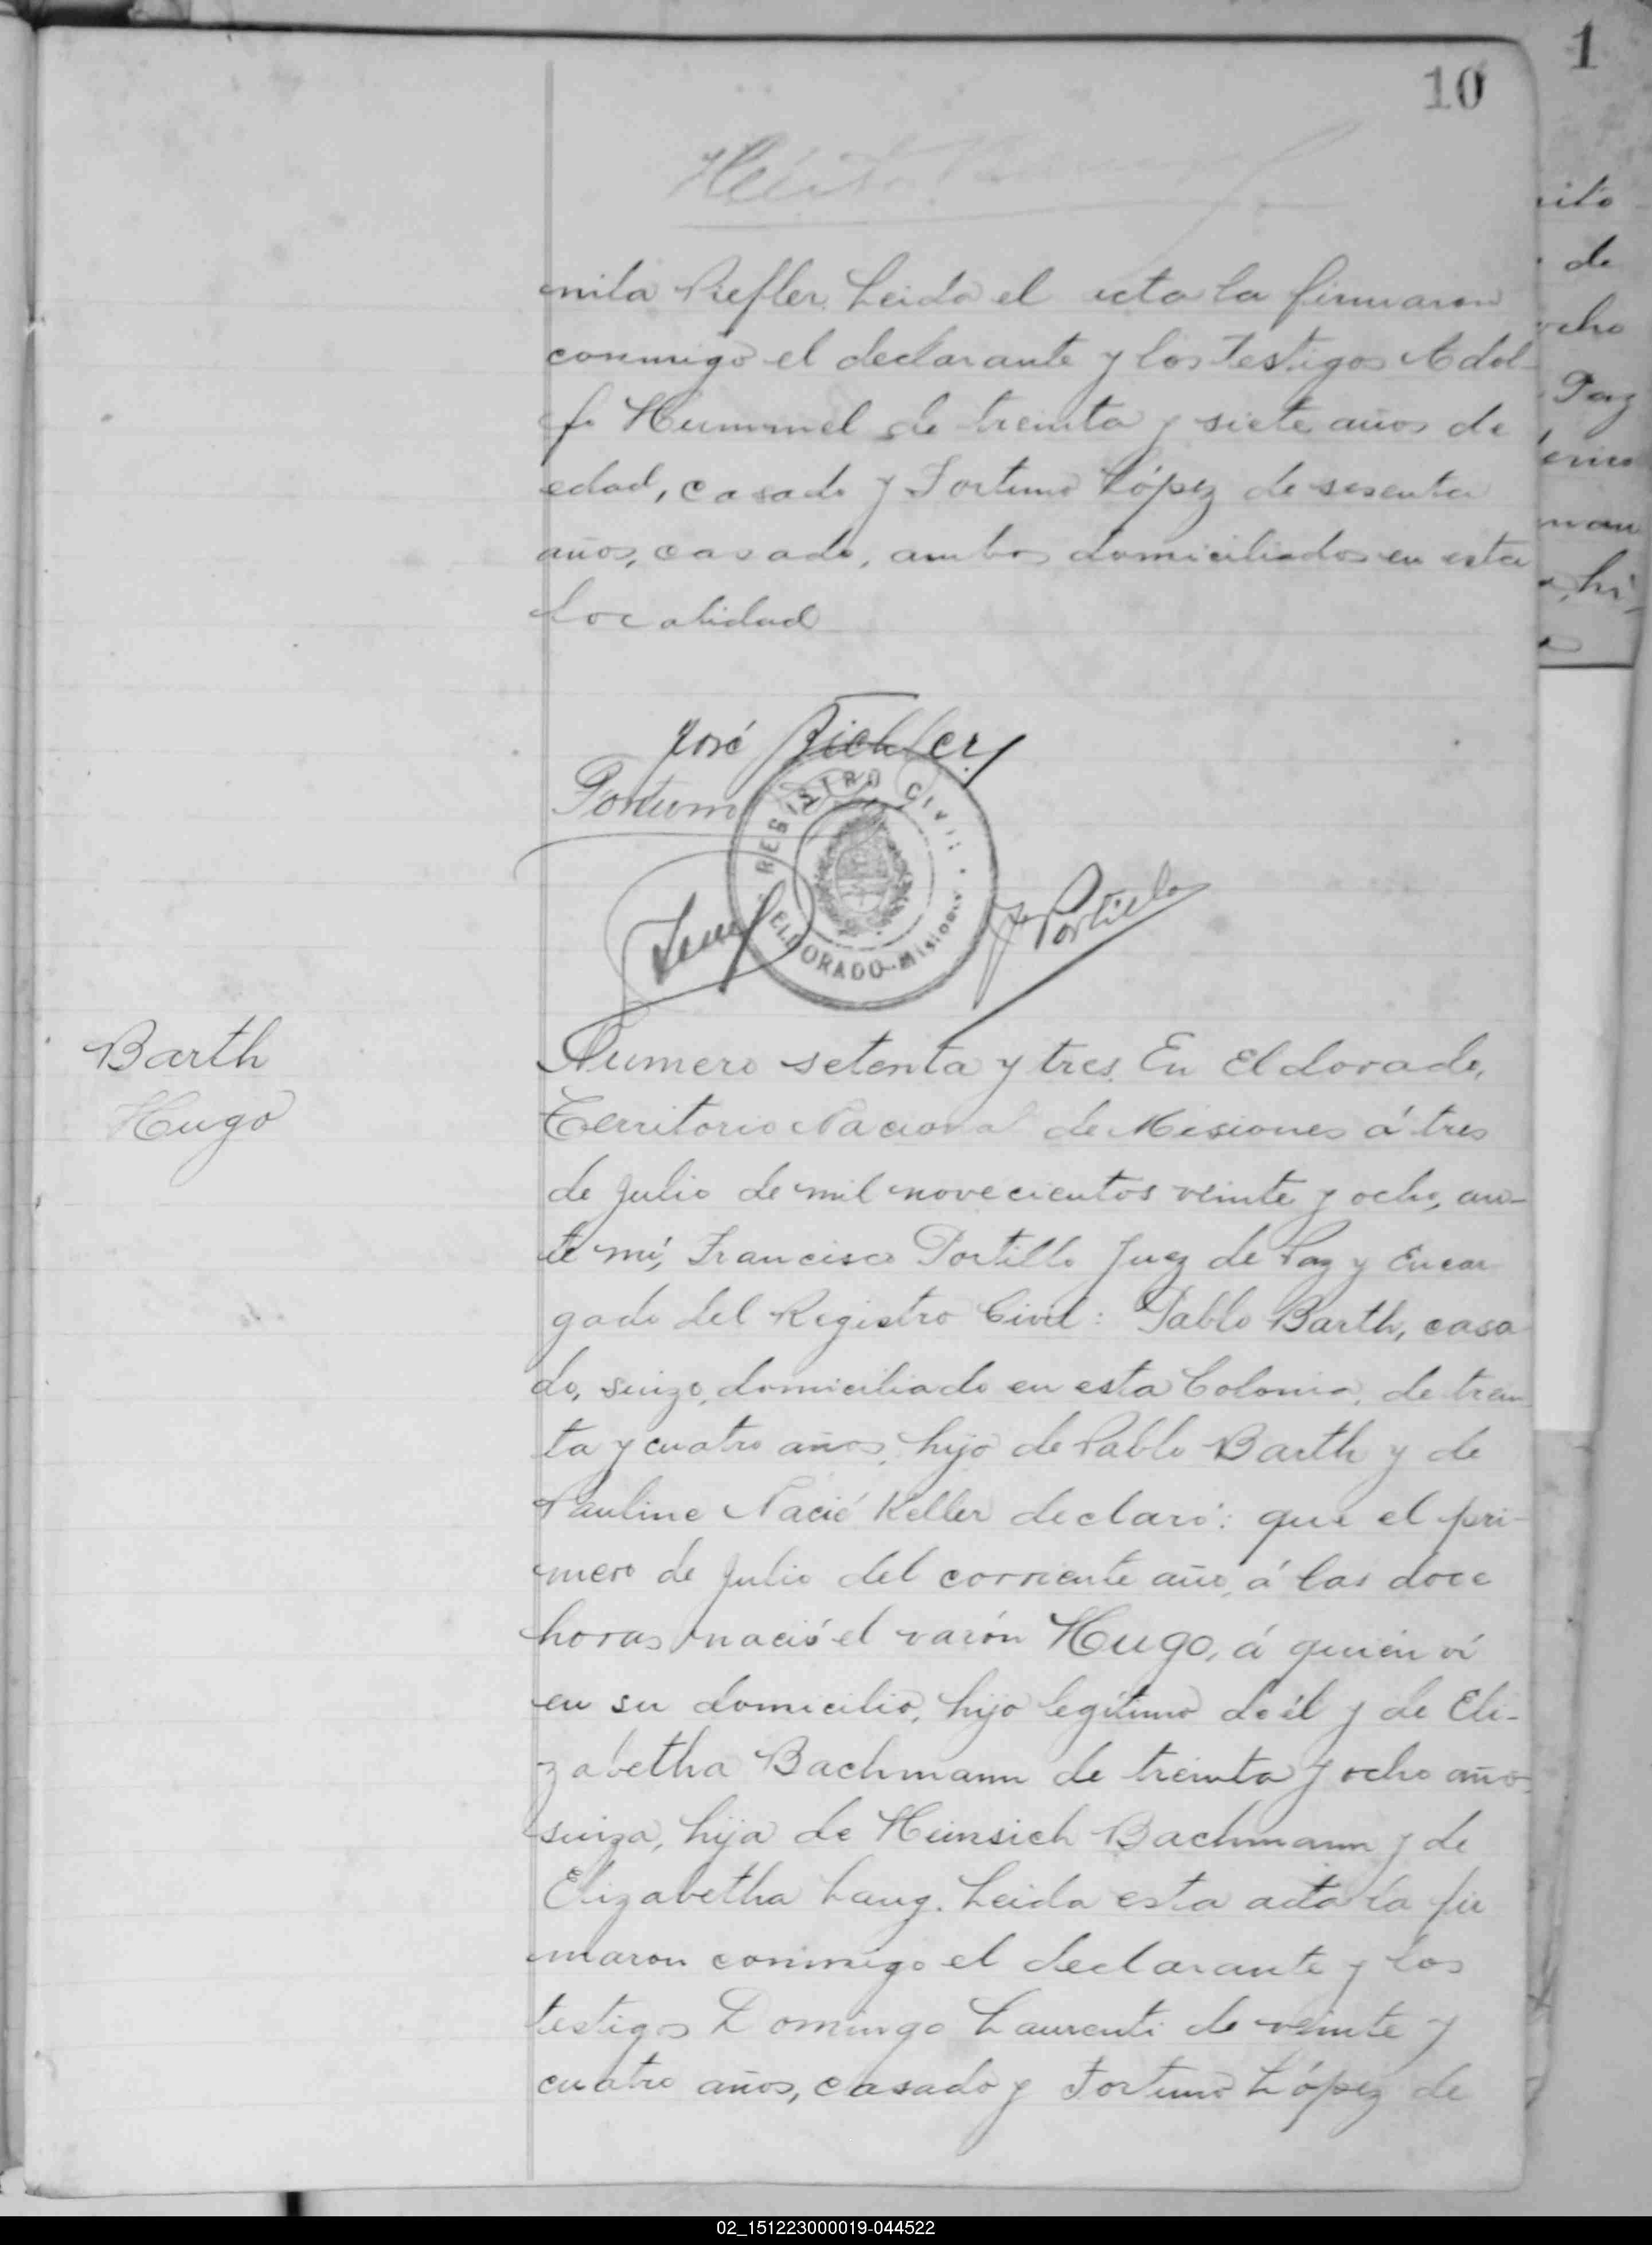 1
10
mila Piefler. Leida el acta la firmaron
conmigo el declarante y los testigos Adol-
fo Hummel de treinta y siete años de
edad, casado y Fortuno López de sesenta
años, casado, ambos domiciliados en esta
localidad
José
Fortuno
REGISTRO CIVIL
ELDORADO-Misiones
F Portillo
Barth
Hugo
Numero setenta y tres. En Eldorado,
Territorio Nacional de Misiones á tres
de Julio de mil novecientos veinte y ocho, an-
te mí, Francisco Portillo Juez de Paz y Encar
gado del Registro Civil: Pablo Barth, casa
do, suizo, domiciliado en esta Colonia, de trein
ta y cuatro años, hijo de Pablo Barth y de
Pauline Nacié Keller declaró: que el pri-
mero de Julio del corriente año, á las doce
horas nació el varón Hugo, á quién ví
en su domicilio, hijo legítimo de él y de Eli-
zabetha Bachmann de treinta y ocho años
suiza, hija de Heinsich Bachmann y de
Elizabetha Laug. Leida esta acta la fir
maron conmigo el declarante y los
testigos Domingo Laurenti de veinte y
cuatro años, casado y Fortuno López de
ito
de
ocho
Paz
man
hi-
02_151223000019-044522